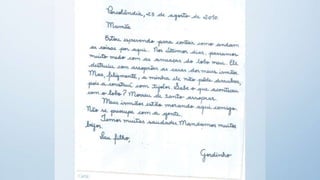 Porcolândia, 23 de agosto de 2010.
Mamãe
Estou esperando para contar como andam
as coisas por aqui. Nos últimos dias, passamos
muito medo com as ameaças do lobo mau. Ele
destruiu com assopros as casas dos meus irmãos.
Mas, felizmente, a minha ele não pôde derrubar,
pois a construí com tijolos. Sabe o que aconteceu
com o lobo? Morreu de tanto assoprar.
Meus irmãos estão morando aqui comigo.
Não se preocupe com a gente.
Temos muitas saudades. Mandamos muitos
beijos.
Seu filho,
Gordinho